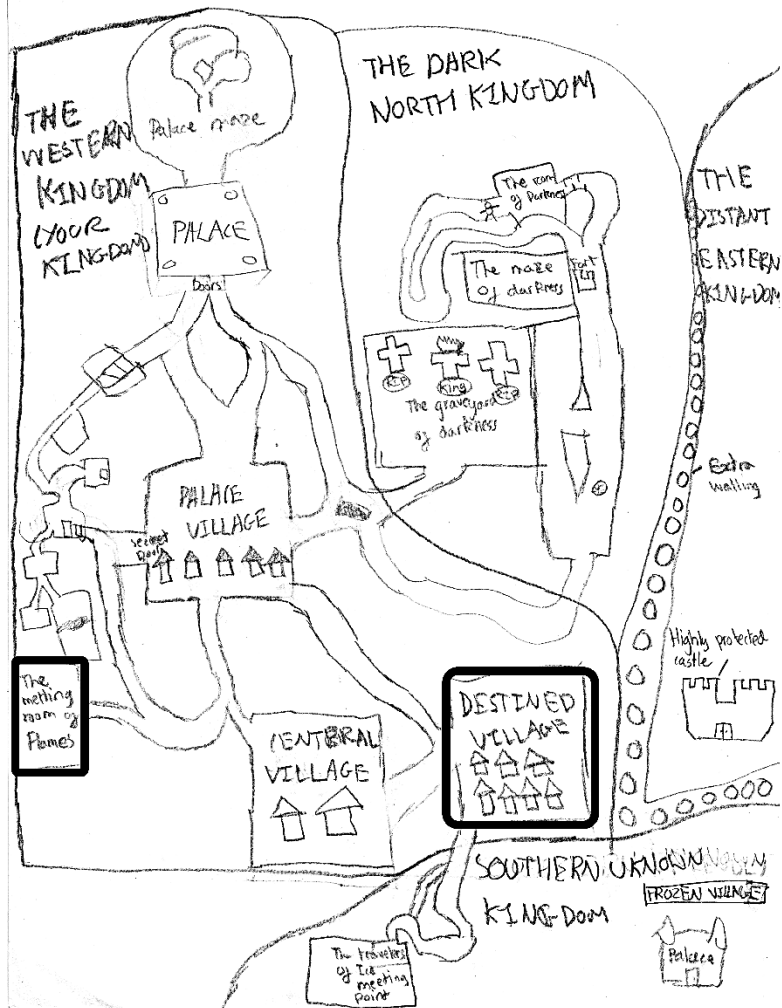 THE
WESTERN
KINGDOM
(YOUR
KINGDOM)
Palace maze
PALACE
Doors
THE DARK
NORTH KINGDOM
The room
of Darkness
The maze
of darkness
Fort
RIP
King
RIP
The graveyard
of darkness
THE
DISTANT
EASTERN
KINGDOM
Extra
walling
PALACE
VILLAGE
secret
Door
The
melting
room of
Flames
CENTERAL
VILLAGE
DESTINED
VILLAGE
Highly protected
castle
SOUTHERN UKNOWN
KINGDOM
FROZEN VILLAGE
Palace
The travelers
of Ice
meeting
point